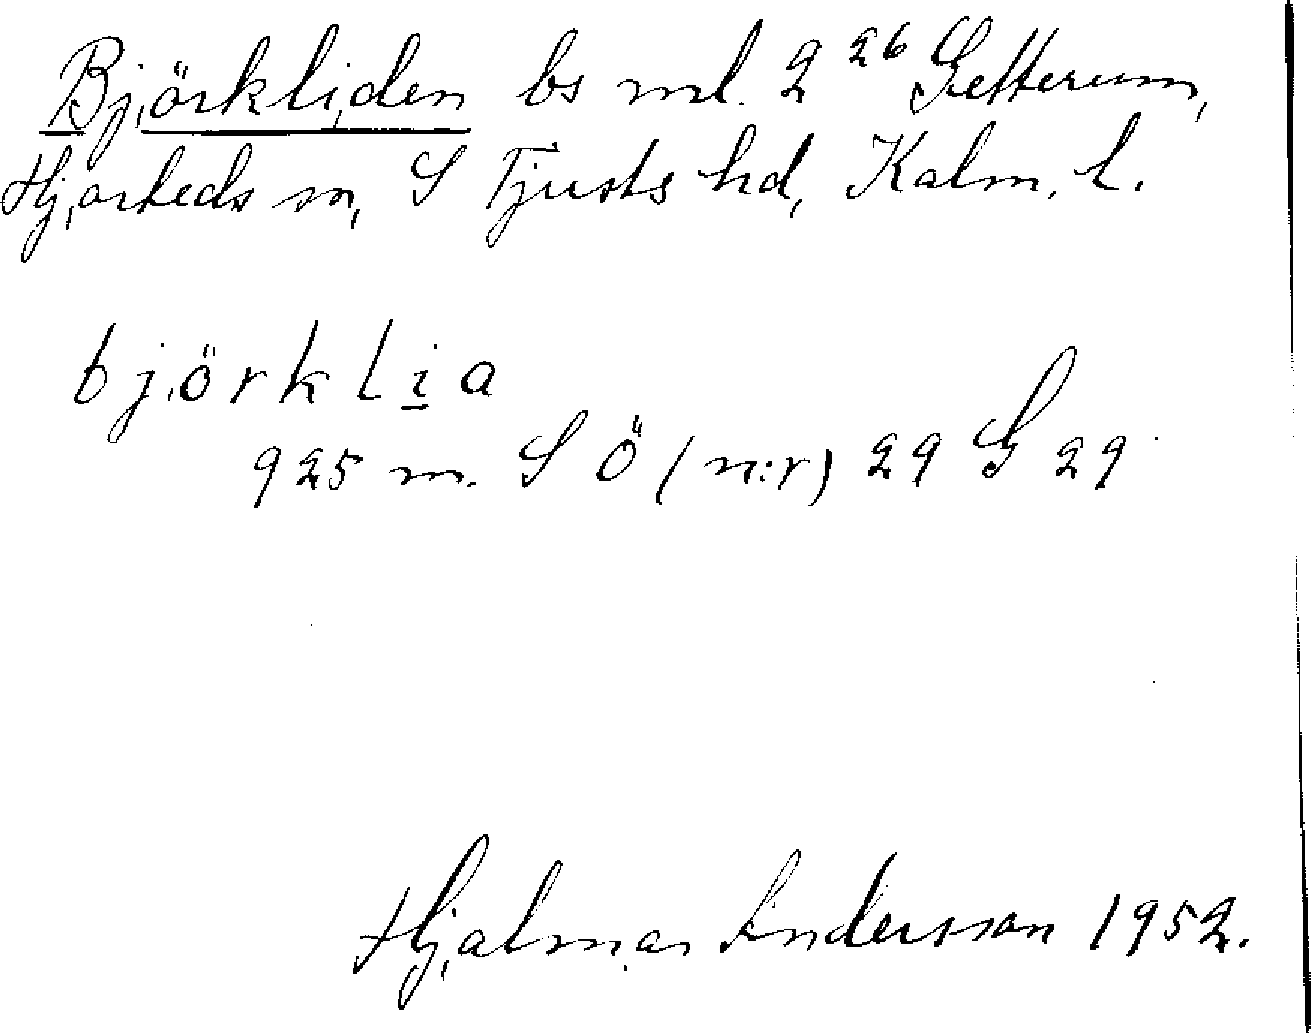 Björkliden bs ml. 2 26 Getterum,
Hjorteds sn, S Tjusts hd, Kalm. l.
björklia
925 m. S Ö (n:r) 29 G 29
Hjalmar Lindersson 1952.